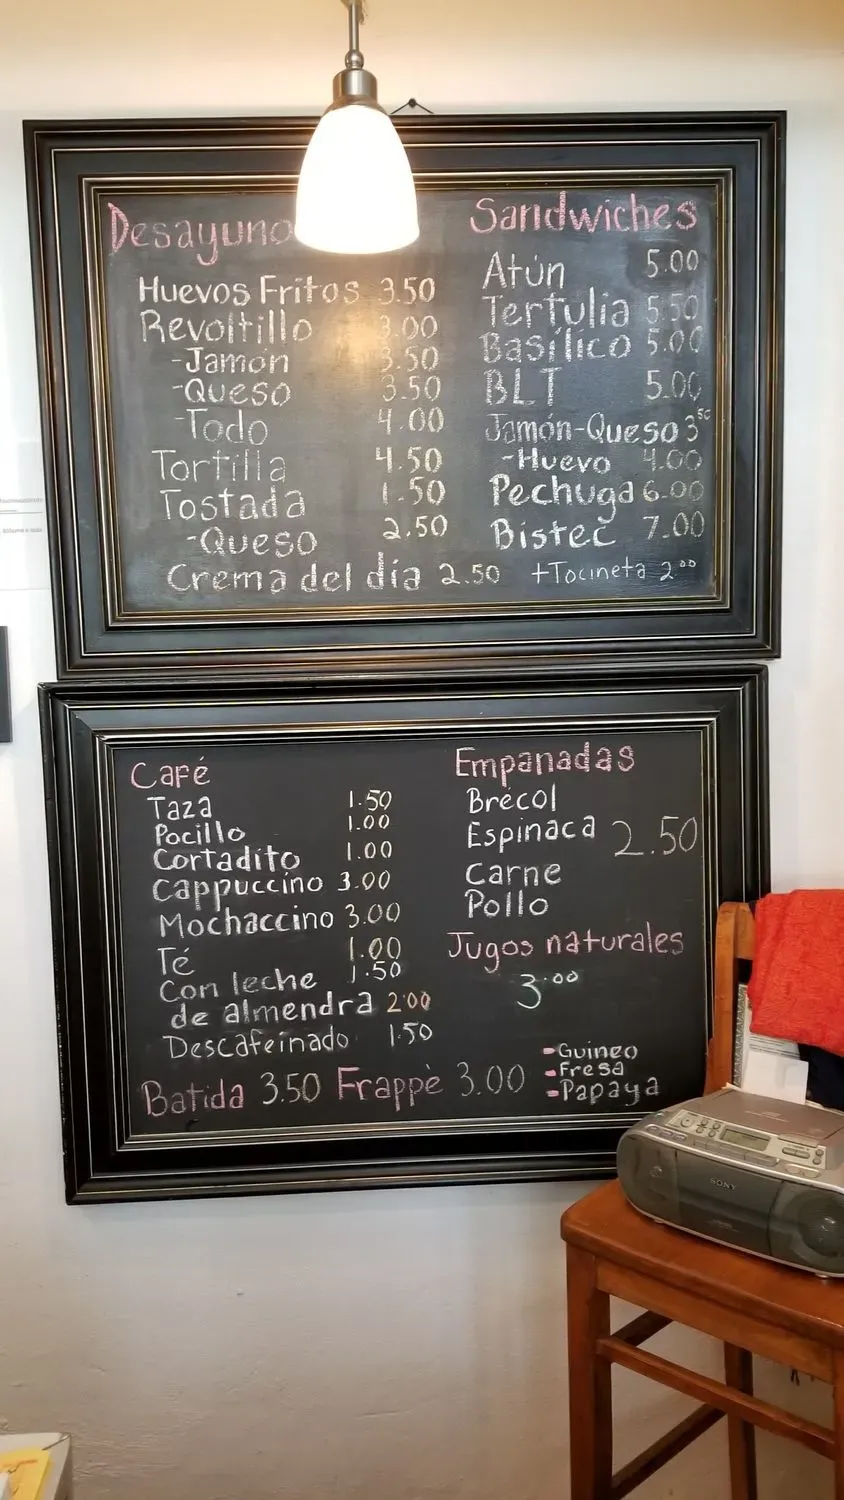 Desayuno
Huevos Fritos 3.50
Revoltillo 3.00
-Jamón 3.50
-Queso 3.50
-Todo 4.00
Tortilla 4.50
Tostada 1.50
-Queso 2.50
Crema del día 2.50
Sandwiches
Atún 5.00
Tertulia 5.50
Basílico 5.00
BLT 5.00
Jamón-Queso 3.50
-Huevo 4.00
Pechuga 6.00
Bistec 7.00
+Tocineta 2.00
Café
Taza 1.50
Pocillo 1.00
Cortadito 1.00
Cappuccino 3.00
Mochaccino 3.00
Té 1.00
Con leche 1.50
de almendra 2.00
Descafeinado 1.50
Batida 3.50 Frappè 3.00
-Guineo
-Fresa
-Papaya
Empanadas
Brécol
Espinaca 2.50
Carne
Pollo
Jugos naturales
3.00
SONY